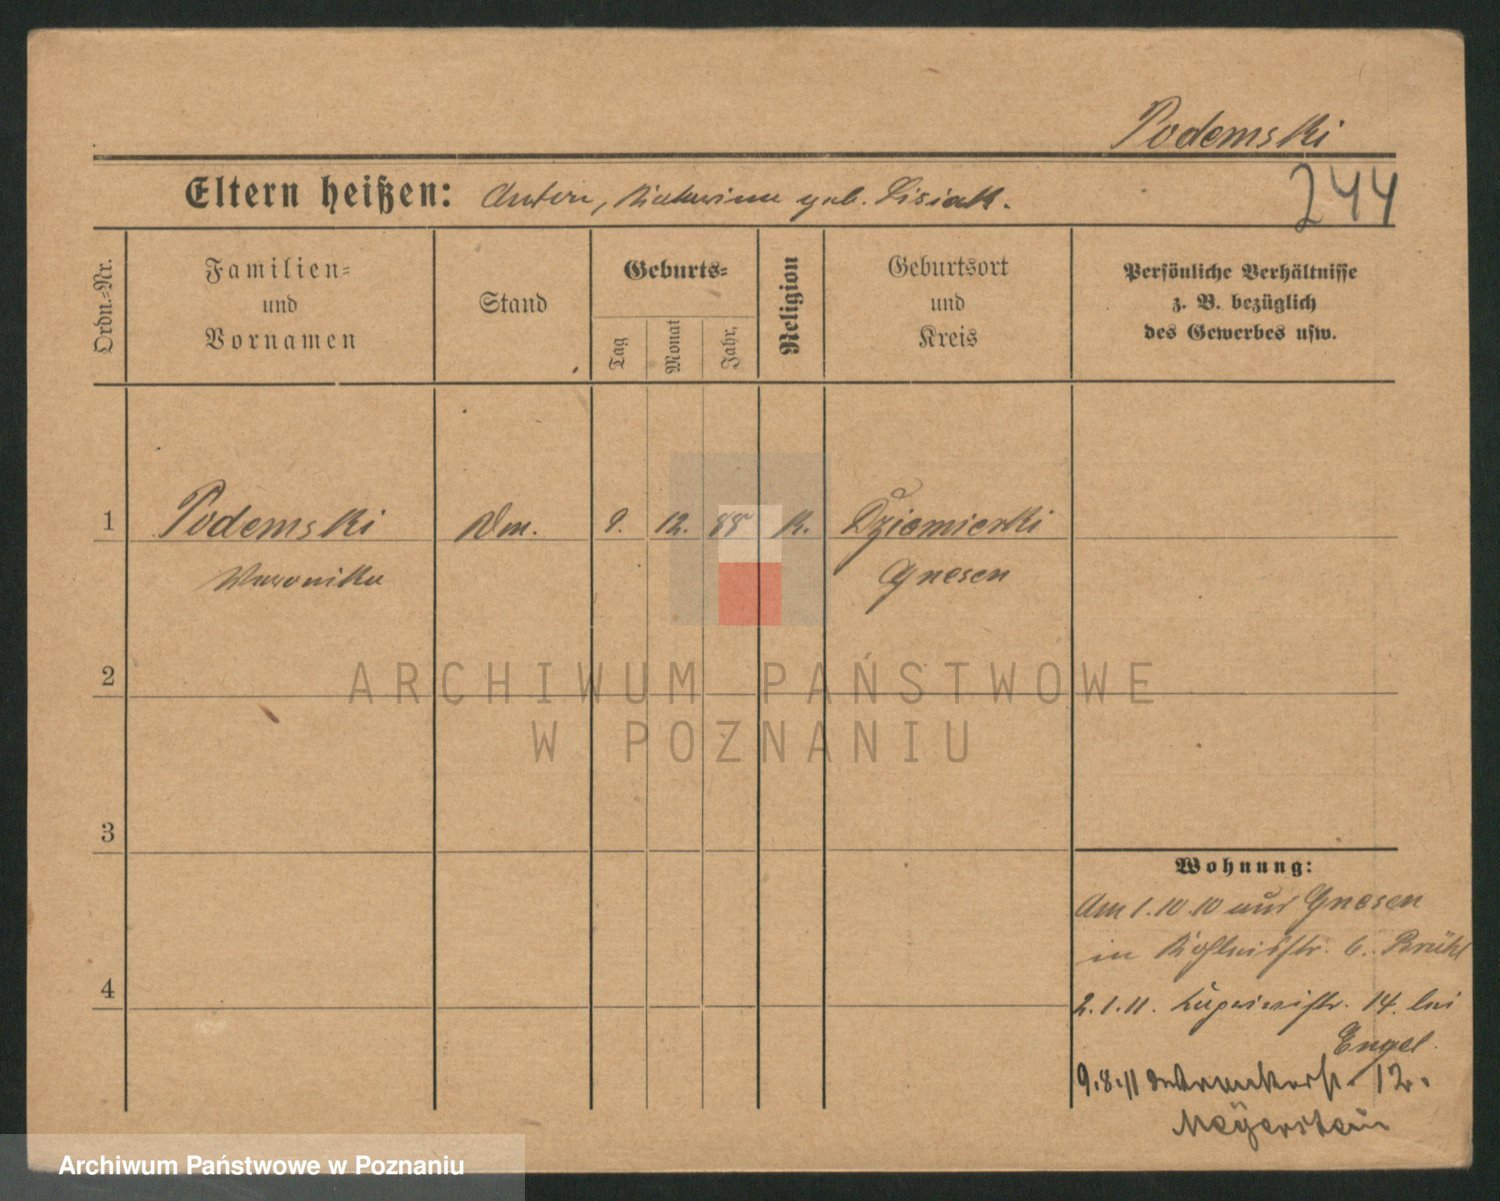 Podemski
Eltern heißen: Anton, Katharina geb. Lisiak.
244
Ordn.-Nr.
Familien-
und
Vornamen
Stand
Geburts-
Tag
Monat
Jahr.
Religion
Geburtsort
und
Kreis
Persönliche Verhältnisse
z. B. bezüglich
des Gewerbes usw.
1 Podemski 9. 12. 88 k. Dziemierski
Weronika Gnesen
2
3
4
Wohnung:
Am 1.10.10 aus Gnesen
in 6. Brühl
2.1.11. 14. bei
Engel.
9.8.11 12.
Meÿerstein
ARCHIWUM PAŃSTWOWE
W POZNANIU
Archiwum Państwowe w Poznaniu